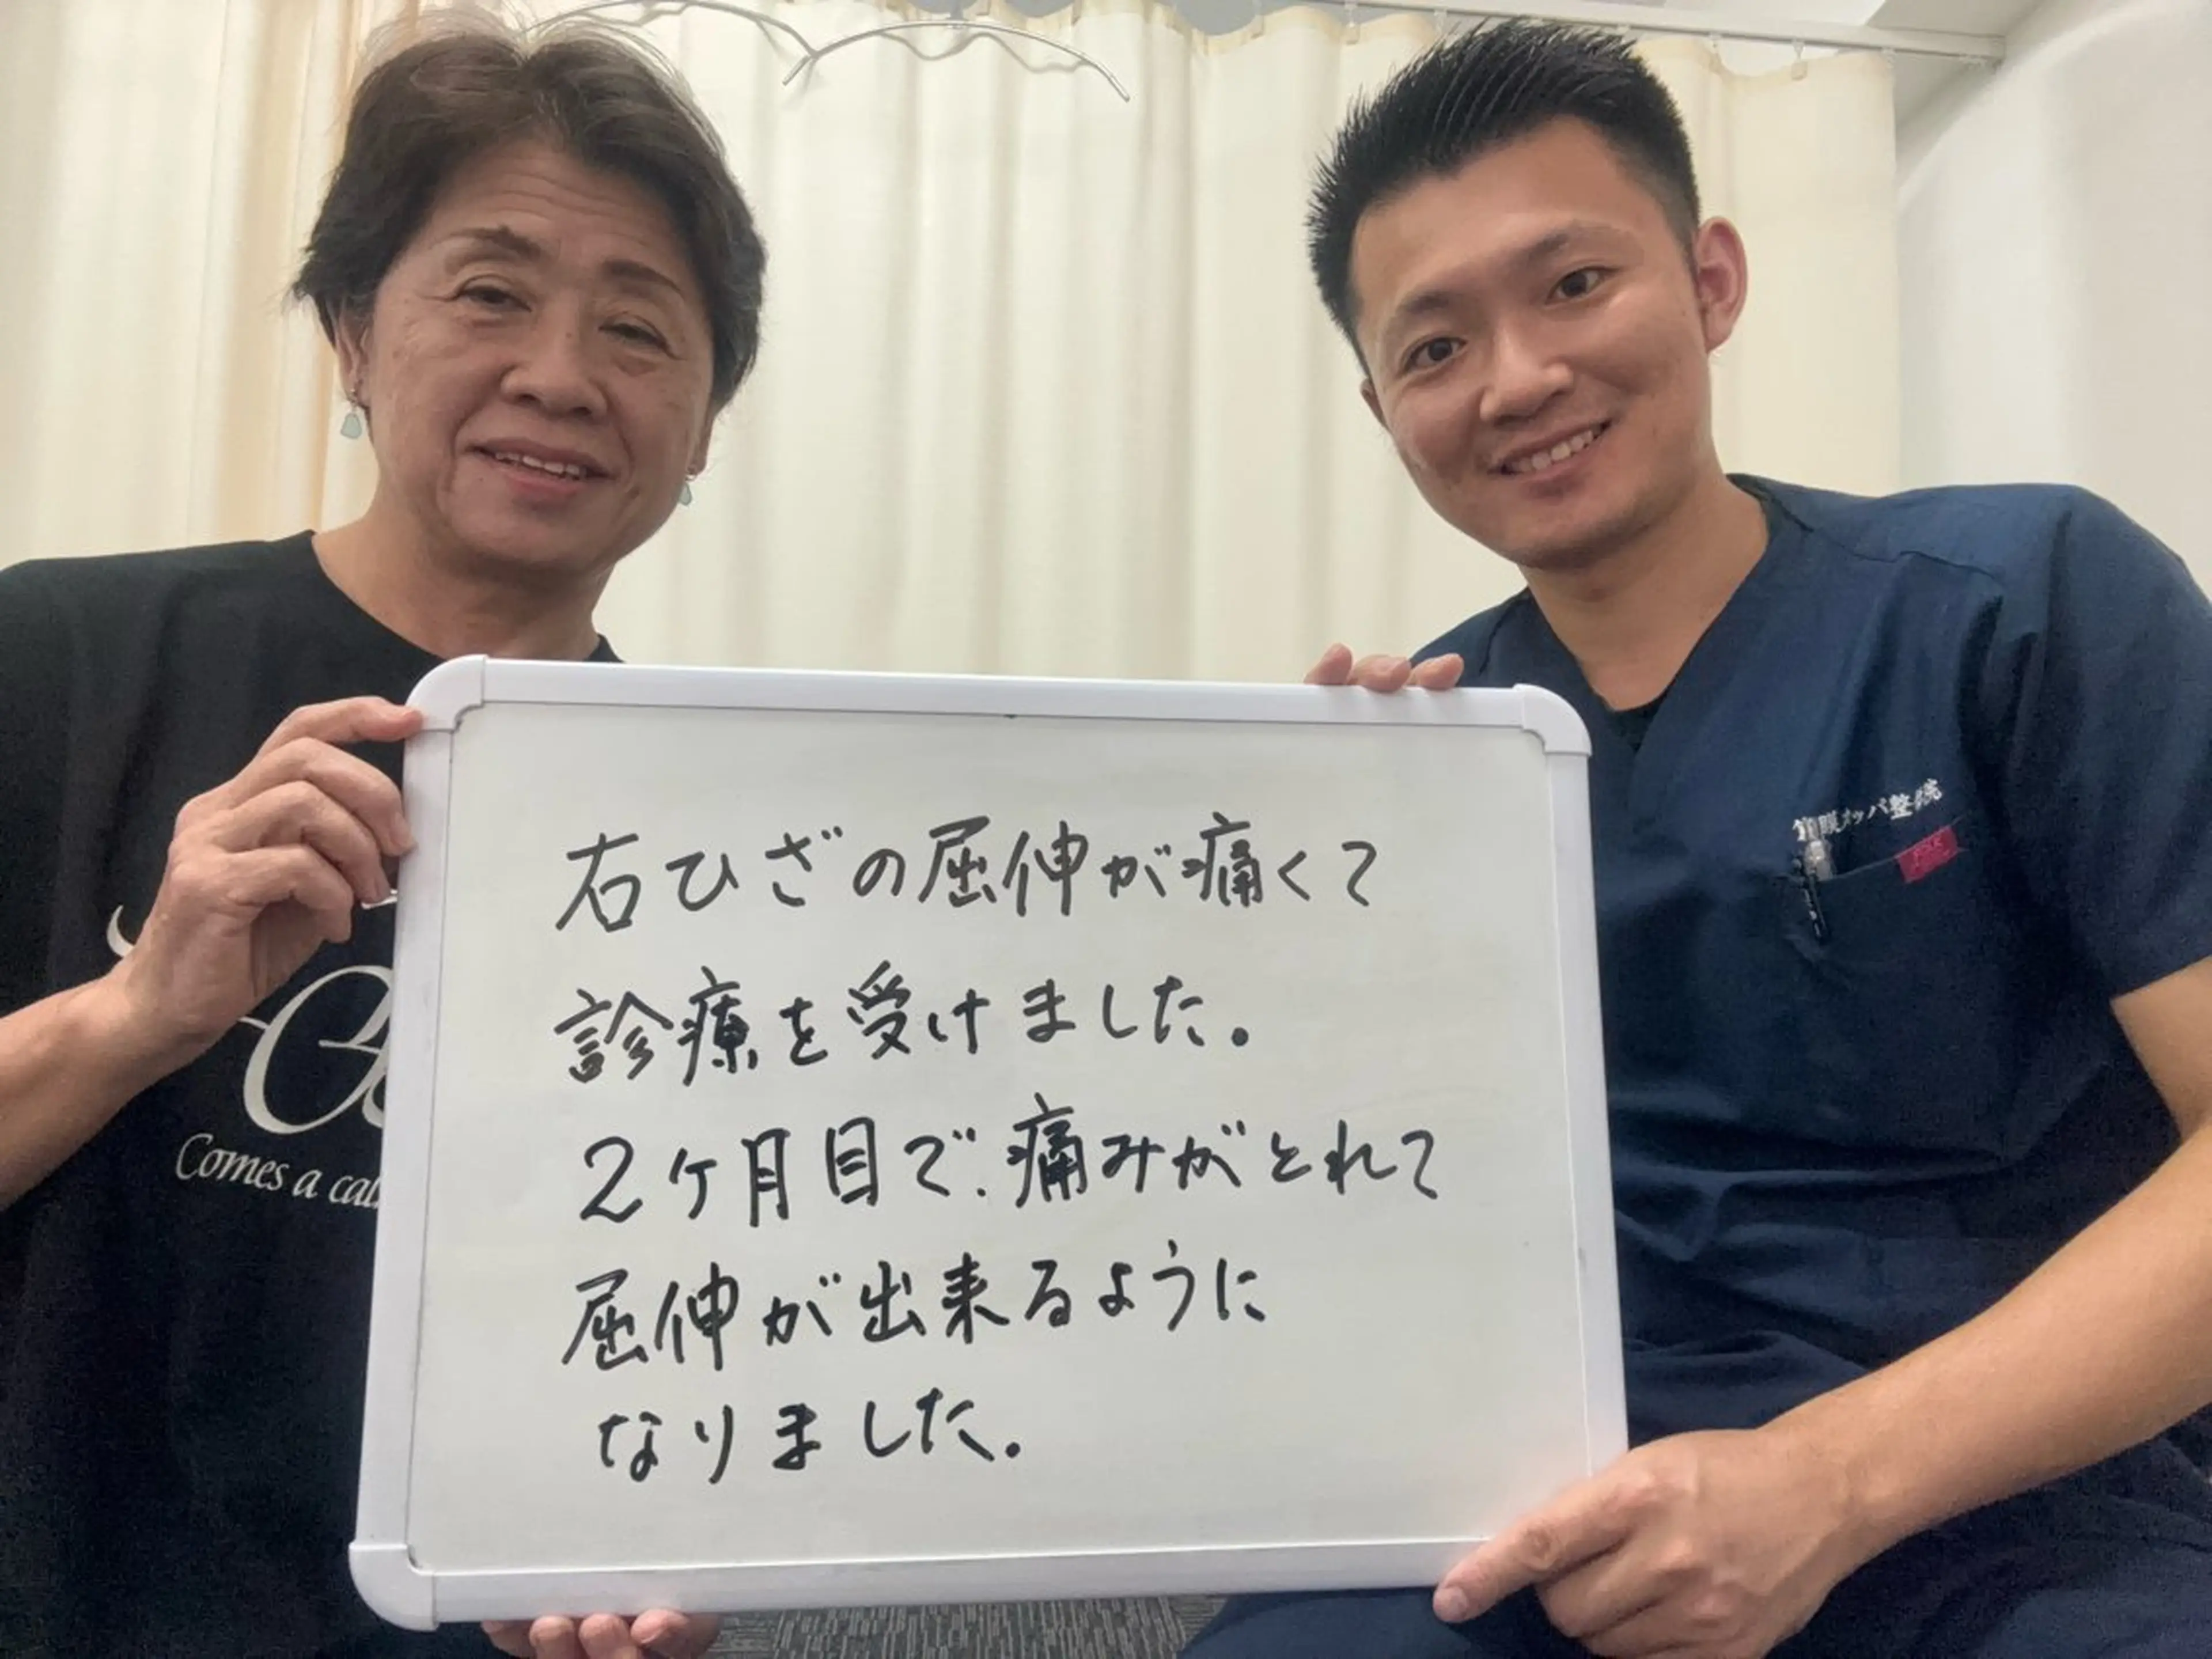 右ひざの屈伸が痛くて
診療を受けました。
2ヶ月目で、痛みがとれて
屈伸が出来るように
なりました。
筋膜カッパ整体院
Comes a cal